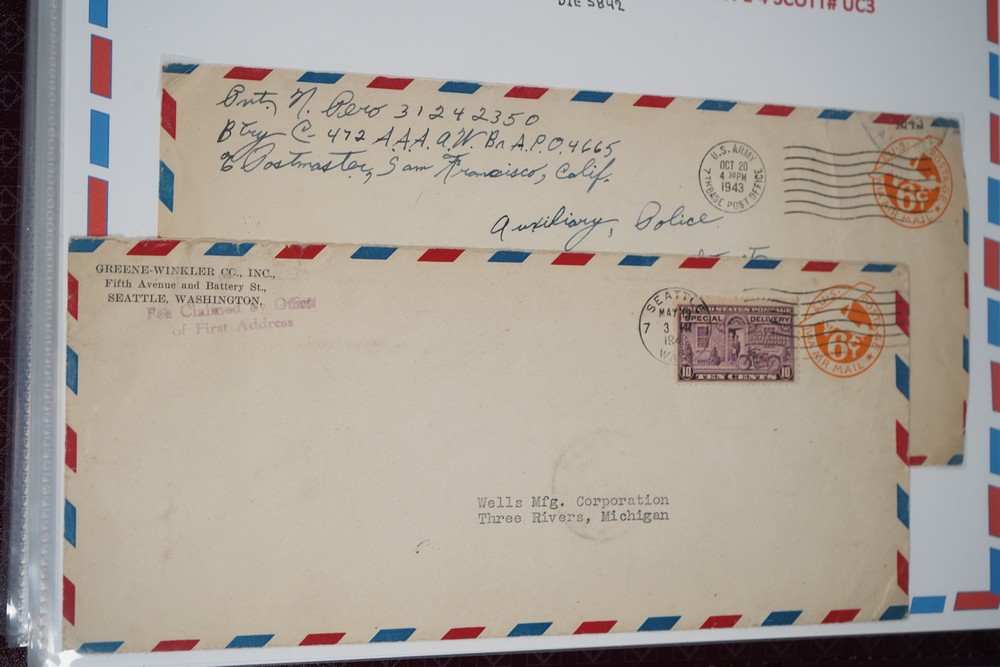 DIE 5842
4 SCOTT# UC3
Pvt. N. Pero 31242350
Btry C- 472 A.A.A. A.W. Bn A.P.O. 4665
℅ Postmaster, San Francisco, Calif.
U.S. ARMY
OCT 20
4 30PM
1943
7TH BASE POST OFFICE
U.S. POSTAGE
6¢
AIR MAIL
Auxiliary Police
GREENE-WINKLER CO., INC.,
Fifth Avenue and Battery St.,
SEATTLE, WASHINGTON.
Fee Claimed by Office
of First Address
SEATTLE
MAY
7 3 PM
194
WASH
UNITED STATES POSTAGE
SPECIAL DELIVERY
10 TEN CENTS 10
U.S. POSTAGE
6¢
AIR MAIL
Wells Mfg. Corporation
Three Rivers, Michigan